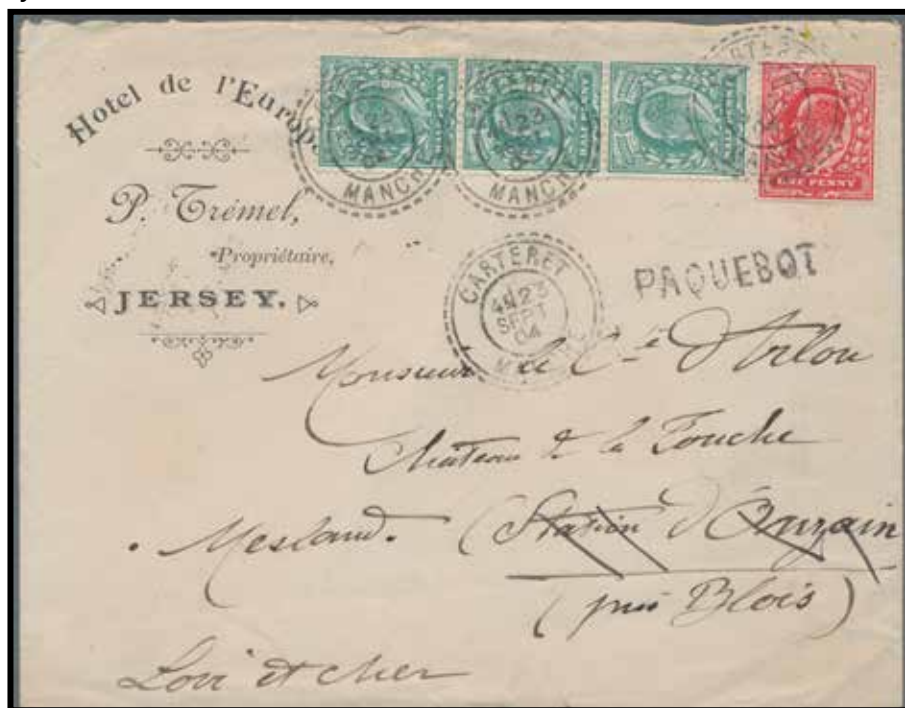 Hotel de l'Europ
P. Trémel,
Propriétaire,
JERSEY.
MANCHE
MANCHE
ONE PENNY
CARTERET
23
SEPT
04
PAQUEBOT
Monsieur le Cte d'Orlou
Chateau de la Touche
Mesland. (Station d'Onzain
(près Blois)
Loir et cher